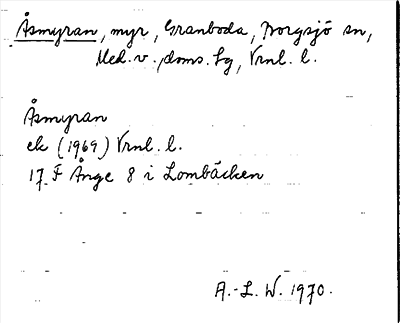 Åsmyran, myr, Granboda, Borgsjö sn,
Med. v. doms. lg, Vrnl. l.
Åsmyran
ek (1969) Vrnl. l.
17 F Ånge 8 i Lombäcken
A.-L. W. 1970.